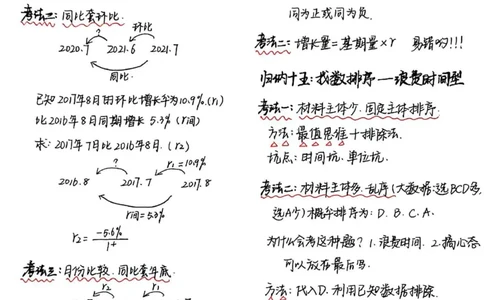 考法二:同比套环比.
环比
?
2020.7 2021.6 2021.7
同比.
已知2017年8月的环比增长率为10.9%.(r₁)
比2016年8月同期增长 5.3% (r间)
求:2017年7月比2016年8月.(r₂)
? r₁=10.9%
2016.8 2017.7 2017.8
r间=5.3%
r₂ = -5.6% / 1+
考法三:月份比较.同比套年底.
r₂ r₁
同为正或同为负.
考法二:增长量=基期量×r 易错的!!!
归纳十五:找数排序—浪费时间型
考法一:材料主体少.固定主体排序.
方法:最值思维+排除法.
坑点:时间坑.单位坑.
考法二:材料主体多.乱序(大数据:选BCD多.
选A少)概率排序为:D.B.C.A.
为什么会考这种题?1.浪费时间.2.搞心态
可以放在最后写.
方法:代入D.利用已知数据排除.